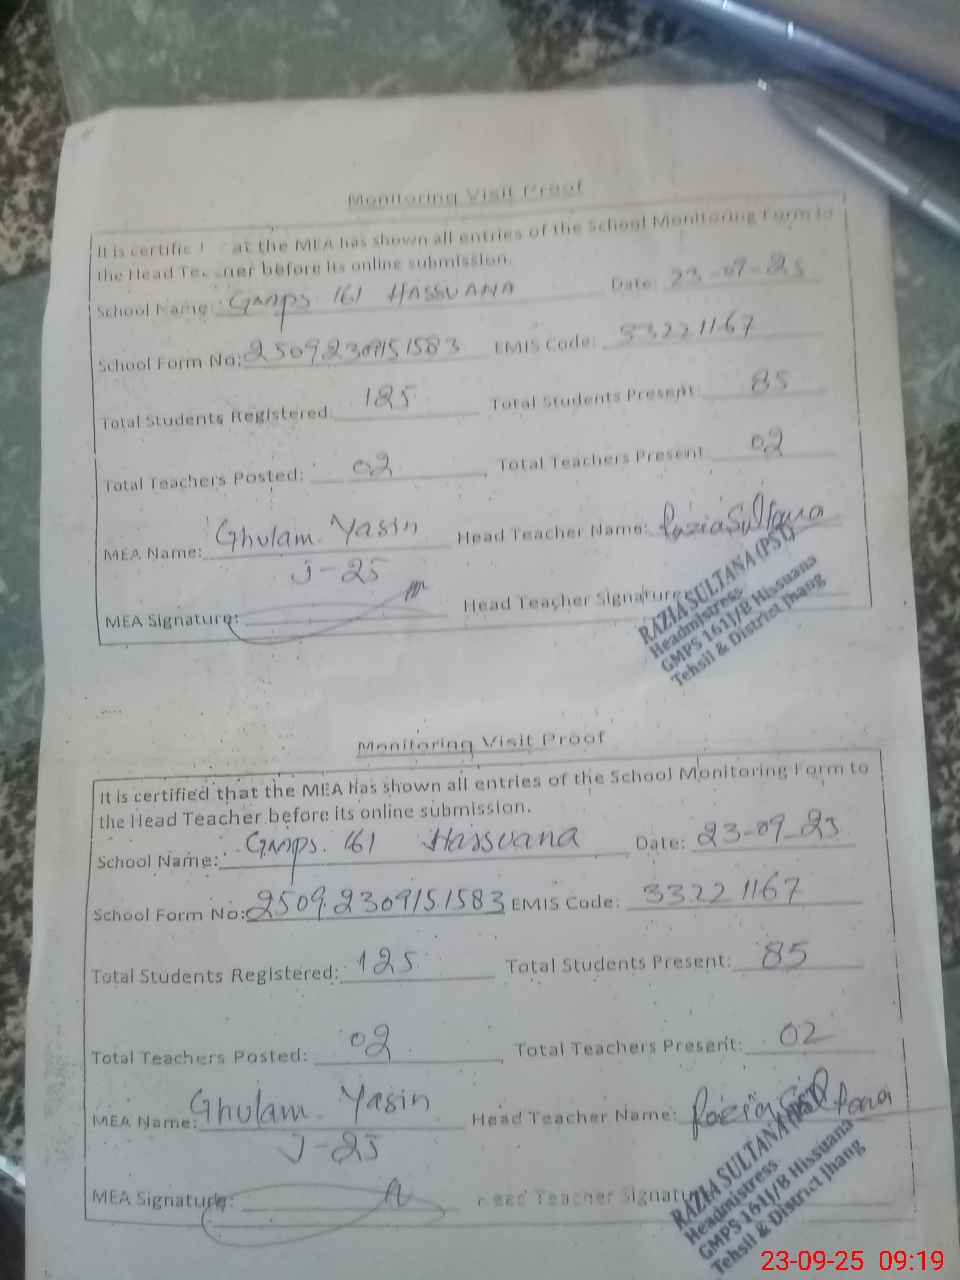 Monitoring Visit Proof
It is certifie at the MEA has shown all entries of the School Monitoring Form to
the Head Te ner before its online submission.
School Name: GMPS 161 HASSUANA Date: 23-09-25
School Form No: 2509230915 1583 EMIS Code: 33221167
Total Students Registered: 125 Total Students Present: 85
Total Teachers Posted: 02 Total Teachers Present 02
MEA Name: Ghulam Yasin Head Teacher Name: Razia Sultana
J-25
MEA Signature: Head Teacher Signature
RAZIA SULTANA (PST)
Headmistress
GMPS 161J/B Hissuana
Tehsil & District Jhang
Monitoring Visit Proof
It is certified that the MEA has shown all entries of the School Monitoring Form to
the Head Teacher before its online submission.
School Name: GMPS. 161 Hassuana Date: 23-09-25
School Form No: 2509230915 1583 EMIS Code: 33221167
Total Students Registered: 125 Total Students Present: 85
Total Teachers Posted: 02 Total Teachers Present: 02
MEA Name: Ghulam Yasin Head Teacher Name: Razia Sultana
J-25
MEA Signature: Head Teacher Signature
RAZIA SULTANA (PST)
Headmistress
GMPS 161J/B Hissuana
Tehsil & District Jhang
23-09-25 09:19